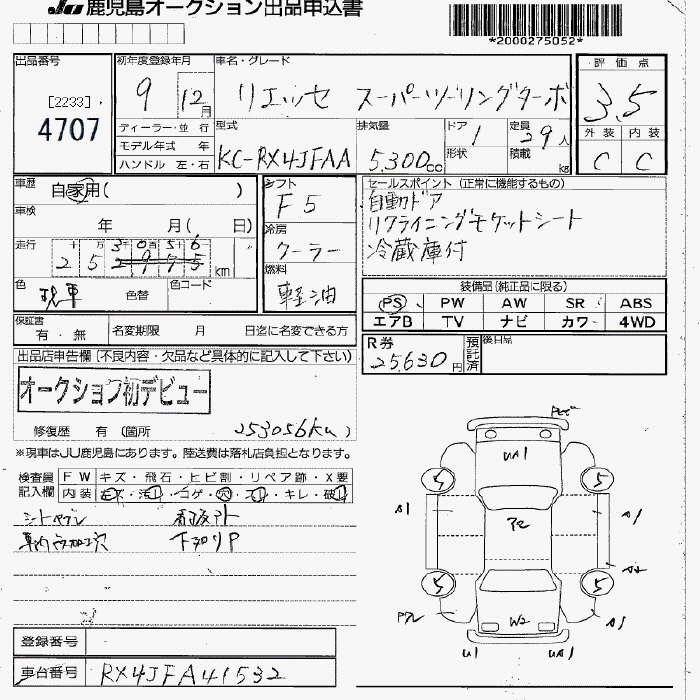 JU 鹿児島オークション出品申込書
*2000275052*
出品番号 初年度登録年月 車名・グレード 評価点
[2233] 4707
9 12月 リエッセ スーパーツーリングターボ 3.5
ディーラー・並行 型式 排気量 ドア 1 定員 29人 外装 内装
モデル年式 年 形状 積載 kg
ハンドル 左・右 KC-RX4JFAA 5.300cc C C
車歴 自家用( ) シフト F5 セールスポイント (正常に機能するもの)
自動ドア
車検 年 月( 日) リクライニングモケットシート
冷房 クーラー 冷蔵庫付
走行 十 万 2 5 3 0 5 6 2975 km
燃料 軽油
色 現車 色替 色コード 装備品(純正品に限る)
PS PW AW SR ABS
エアB TV ナビ カワ 4WD
保証書 有・無 名変期限 月 日迄に名変できる方
R券 25,630円 預託済 後日品
出品店申告欄 (不良内容・欠品など具体的に記入して下さい)
オークション初デビュー
修復歴 有 (箇所 253056km )
※現車はJU鹿児島にあります。陸送費は落札店負担となります。
検査員記入欄 FW キズ・飛石・ヒビ割・リペア跡・X要
内装 キズ・汚レ・コゲ・穴・スレ・キレ・破レ
シートヤブレ 看板アト
下廻りP
UA1
5 5
A1 A1
A2
5 5
W2 A1
U1 UA1
登録番号
車台番号 RX4JFA41532